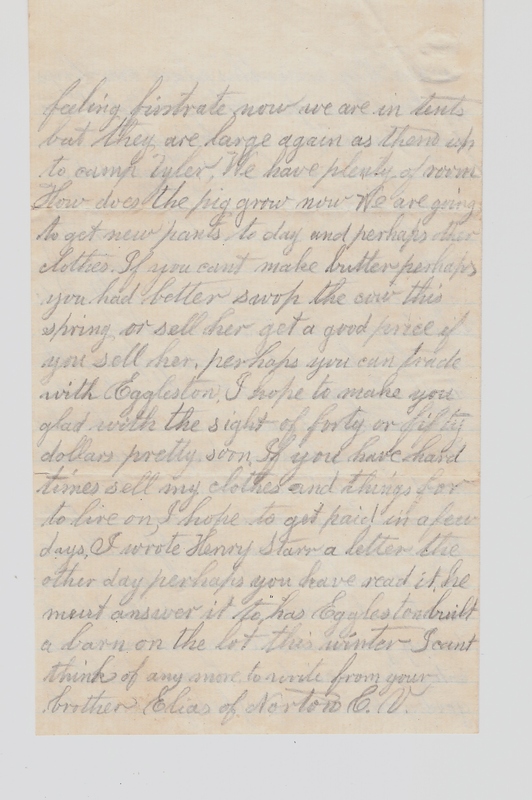 feeling firstrate now we are in tents
but they are large again as them up
to camp Tyler, We have plenty of room
How does the pig grow now We are going
to get new pants to day and perhaps other
clothes. If you cant make butter perhaps
you had better swop the cow this
spring or sell her get a good price if
you sell her, perhaps you can trade
with Eggleston, I hope to make you
glad with the sight of forty or fifty
dollars pretty soon If you have hard
times sell my clothes and things for
to live on, I hope to get paid in a few
days, I wrote Henry Starr a letter the
other day perhaps you have read it, he
must answer it to, has Eggleston built
a barn on the lot this winter I cant
think of any more to write from your
brother Elias of Norton E. V.